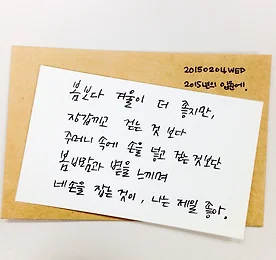 20150204WED
2015년의 입춘에.
봄보다 겨울이 더 좋지만,
장갑끼고 걷는 것 보다
주머니 속에 손을 넣고 걷는것보단
봄바람과 볕을 느끼며
네손을 잡는것이, 나는 제일 좋아.